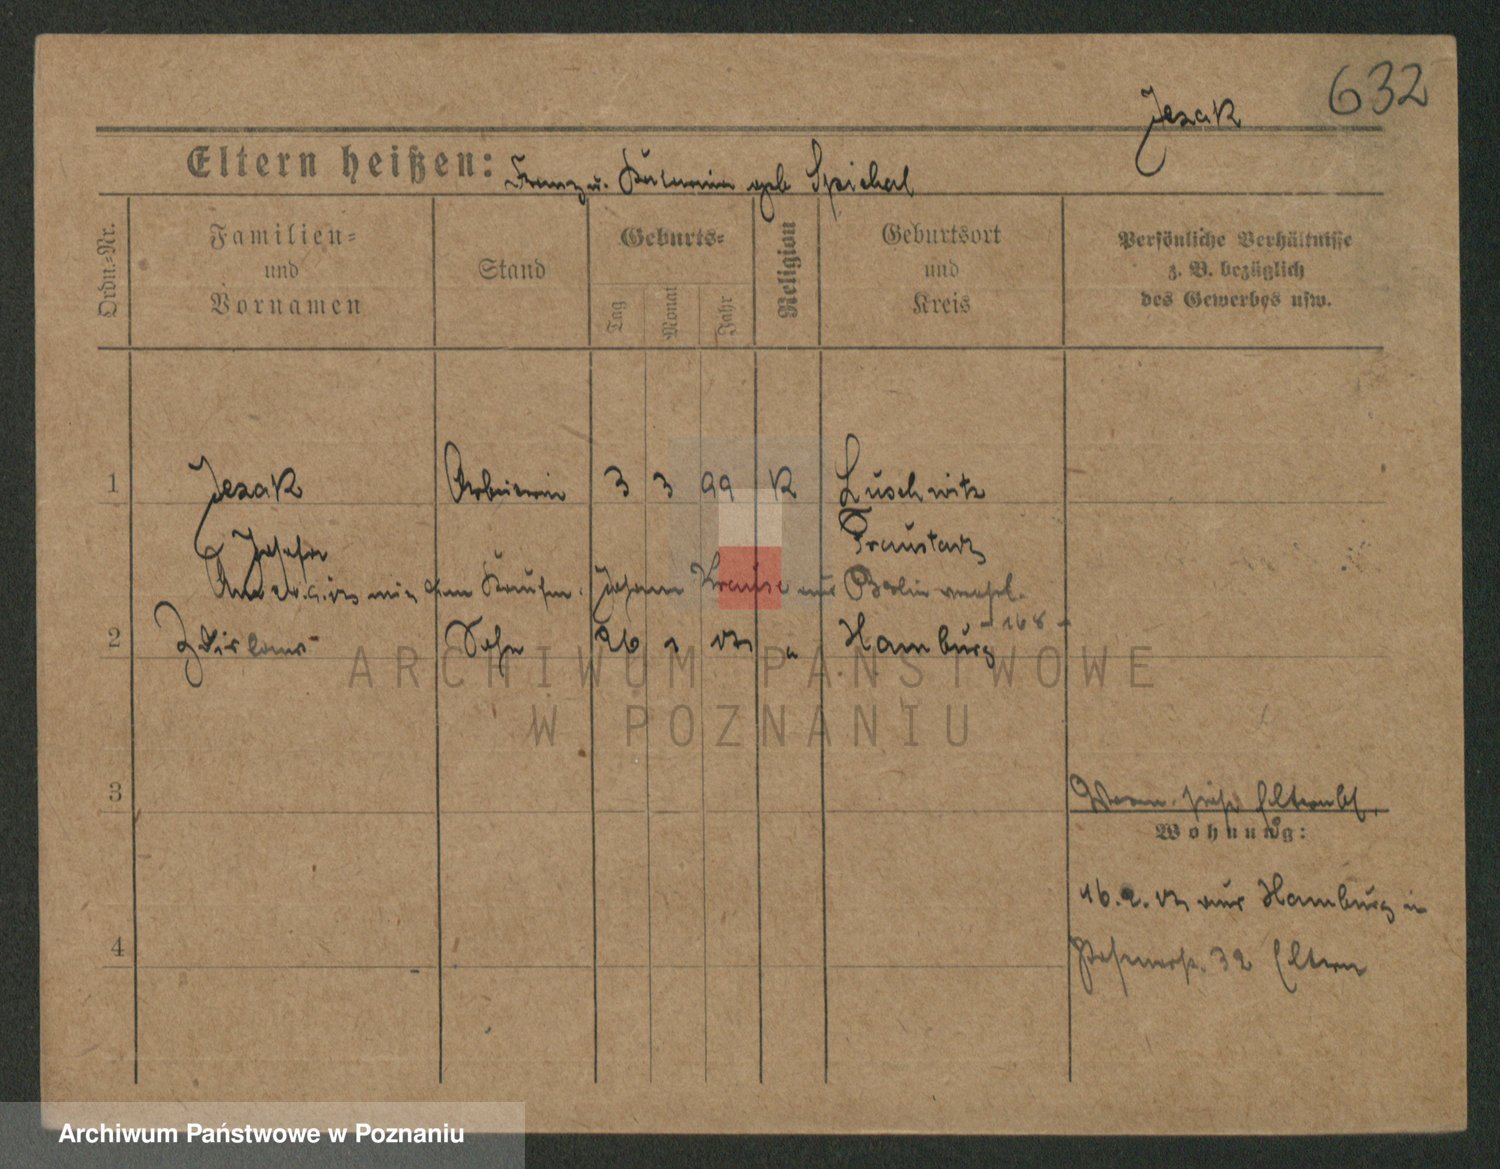 632
Jezak
Eltern heißen: Franz u. geb Spichal
Ordn.-Nr.
Familien=
und
Vornamen
Stand
Geburts=
Tag
Monat
Jahr
Religion
Geburtsort
und
Kreis
Persönliche Verhältnisse
z. B. bezüglich
des Gewerbes usw.
1 Jezak Arbeiterin 3 3 99 K Luschwitz
Fraustadt
Johann Krause aus Berlin
168
2 Sohn 26 Hamburg
ARCHIWUM PAŃSTWOWE
W POZNANIU
3
siehe Elternbl.
Wohnung:
16. 2. aus Hamburg in
4
32 Eltern
Archiwum Państwowe w Poznaniu